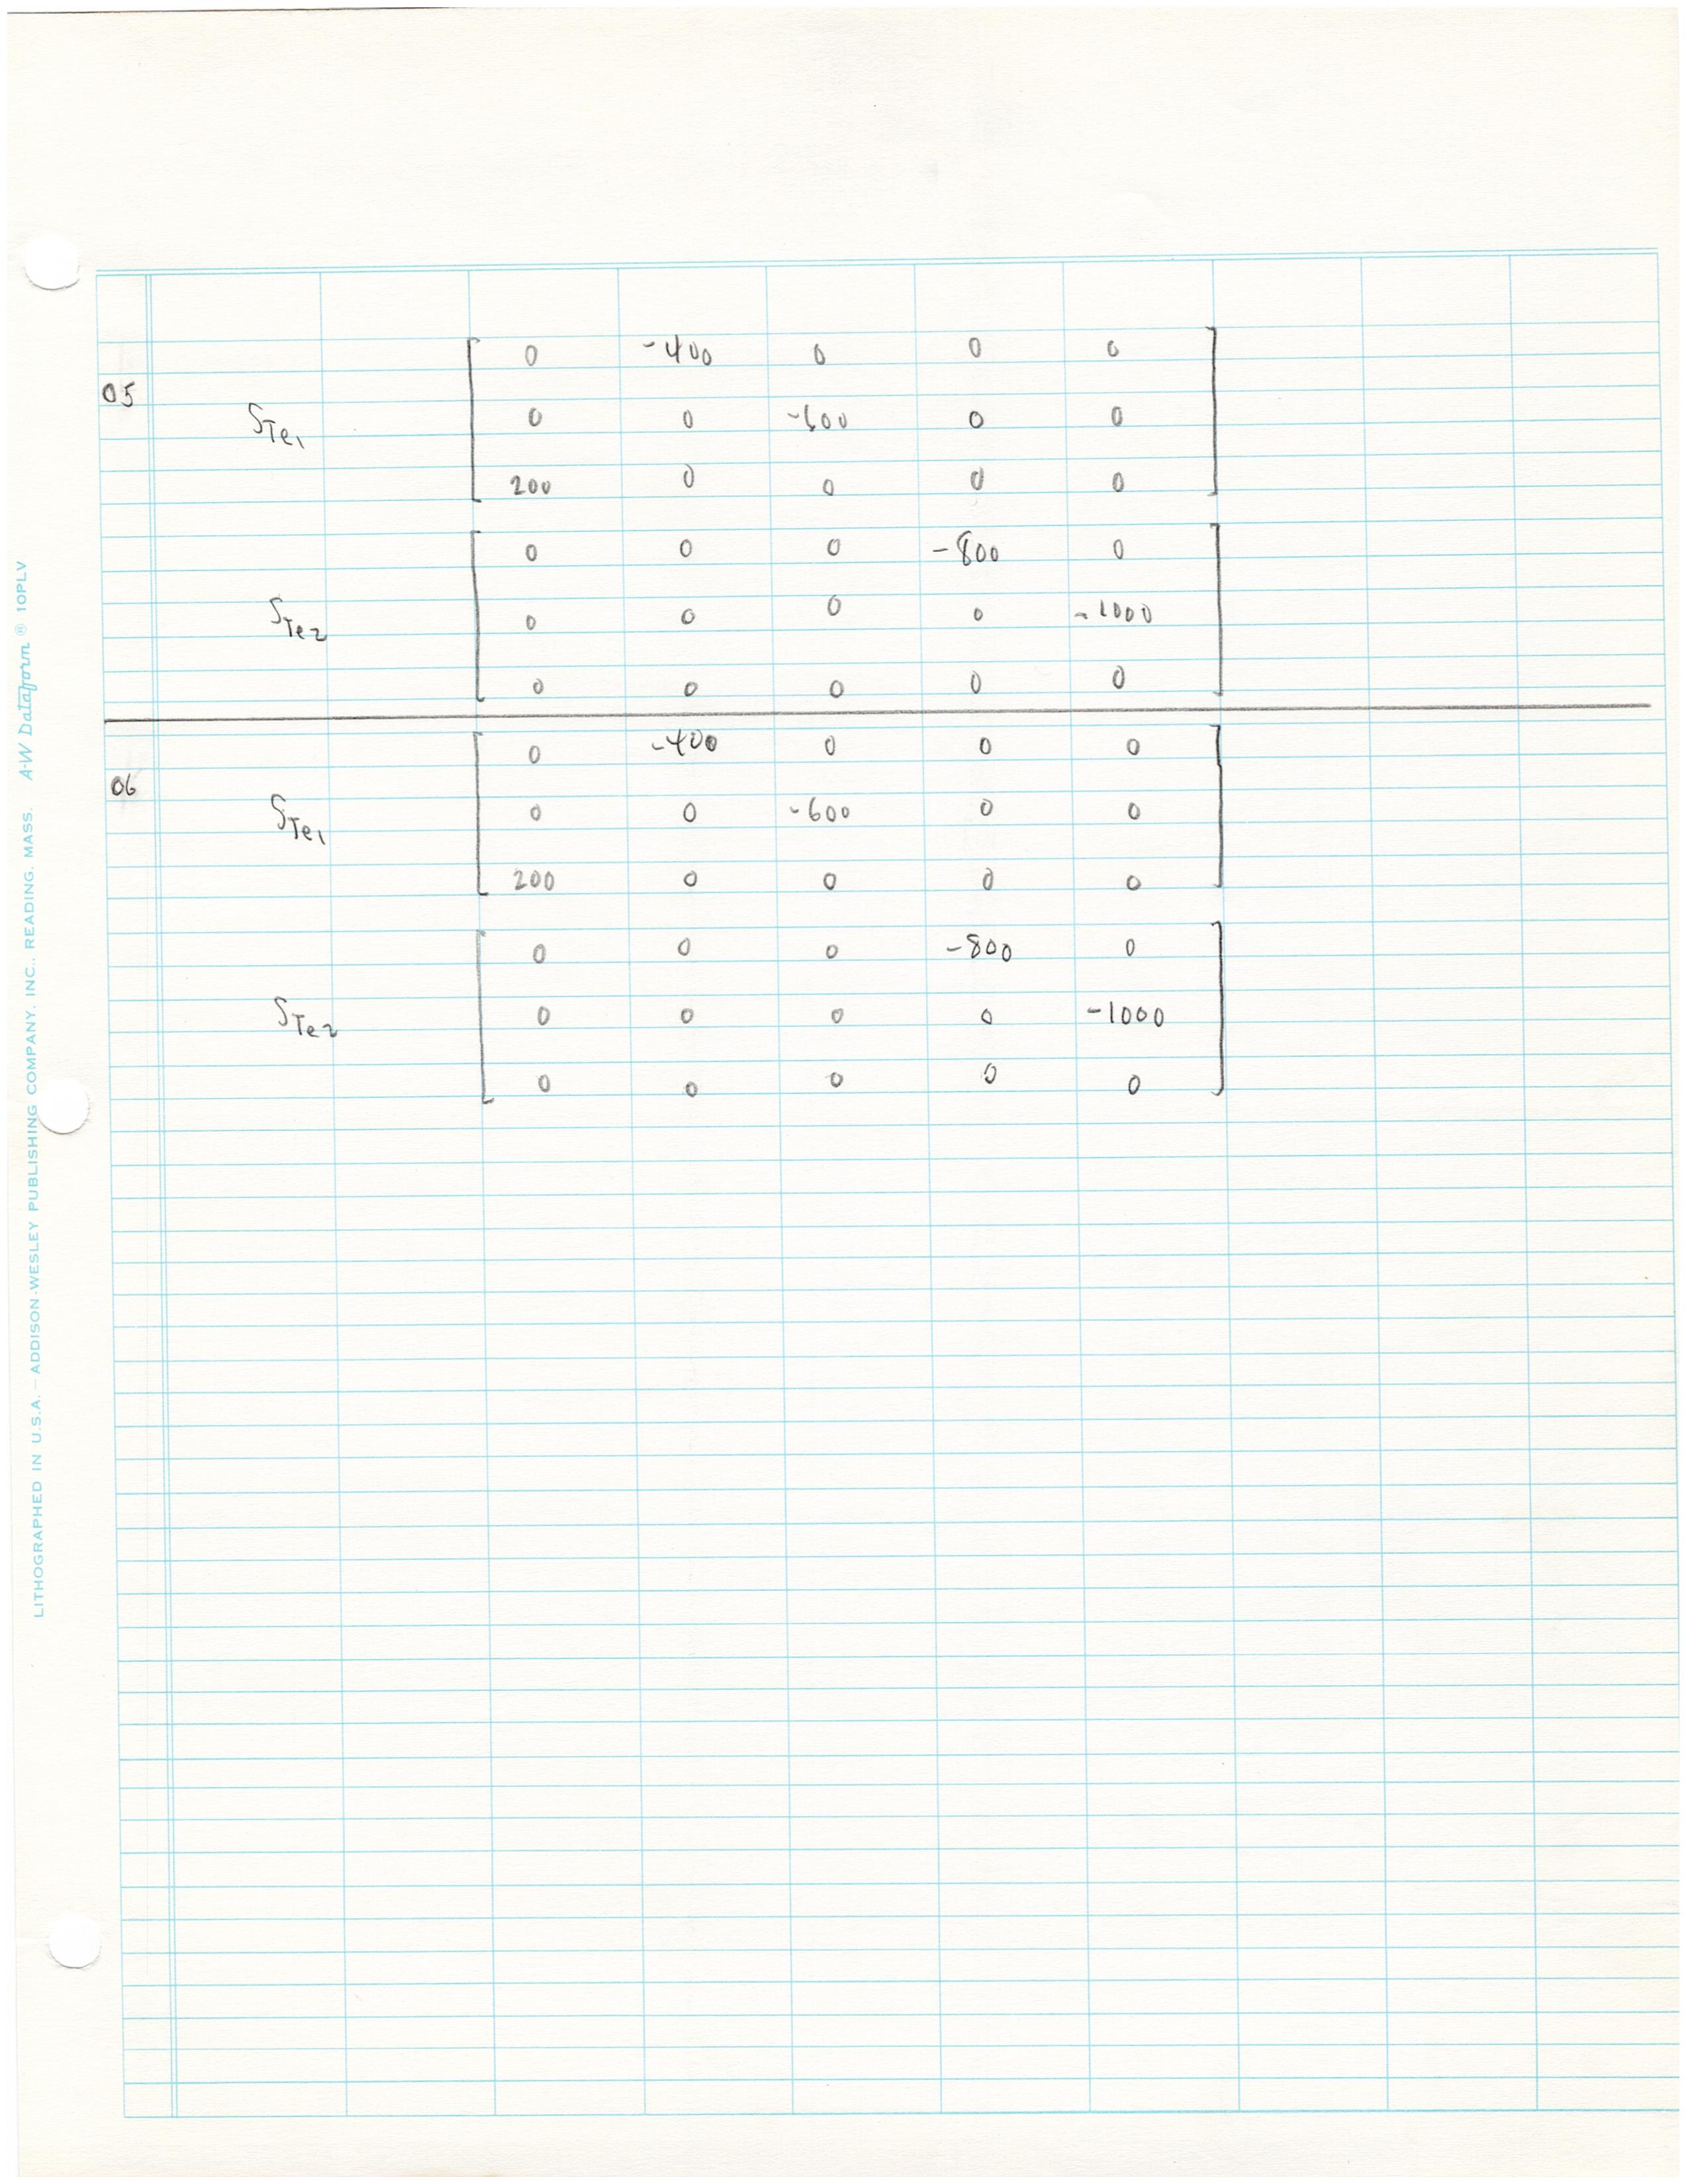 0 -400 0 0 0
05
STe1 0 0 -600 0 0
200 0 0 0 0
0 0 0 -800 0
STe2 0 0 0 0 -1000
0 0 0 0 0
0 -400 0 0 0
06
STe1 0 0 -600 0 0
200 0 0 0 0
0 0 0 -800 0
STe2 0 0 0 0 -1000
0 0 0 0 0
LITHOGRAPHED IN U.S.A. – ADDISON-WESLEY PUBLISHING COMPANY, INC., READING, MASS. A-W Dataform ® 10PLV